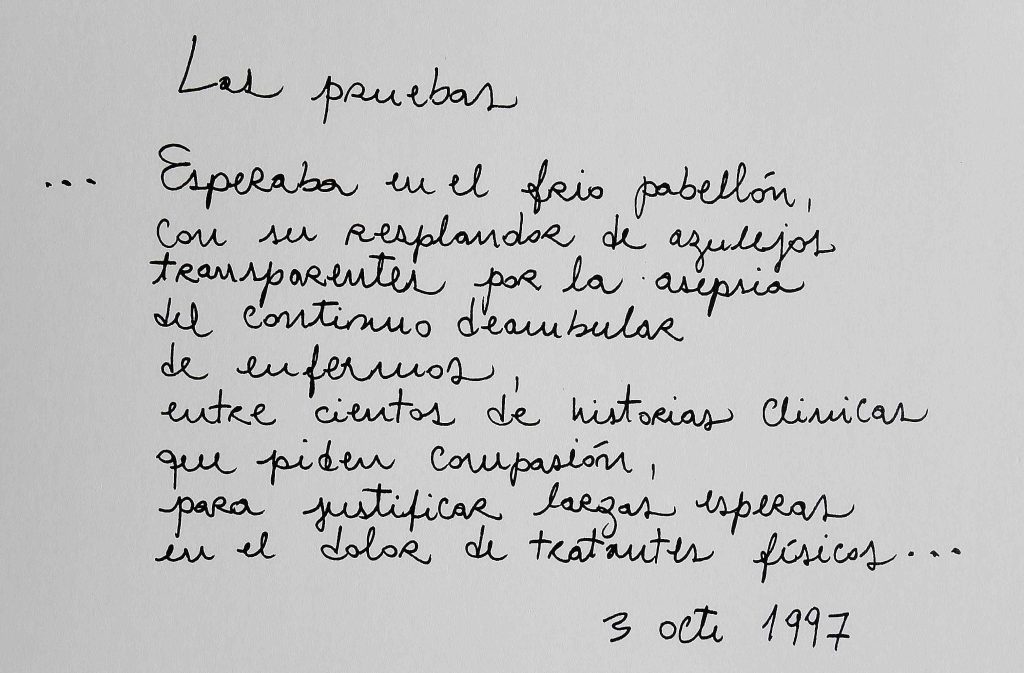 Las pruebas
... Esperaba en el frio pabellón,
con su resplandor de azulejos
transparentes por la asepsia
del continuo deambular
de enfermos,
entre cientos de historias clinicas
que piden compasión,
para justificar largas esperas
en el dolor de tratantes físicos...
3 octe 1997